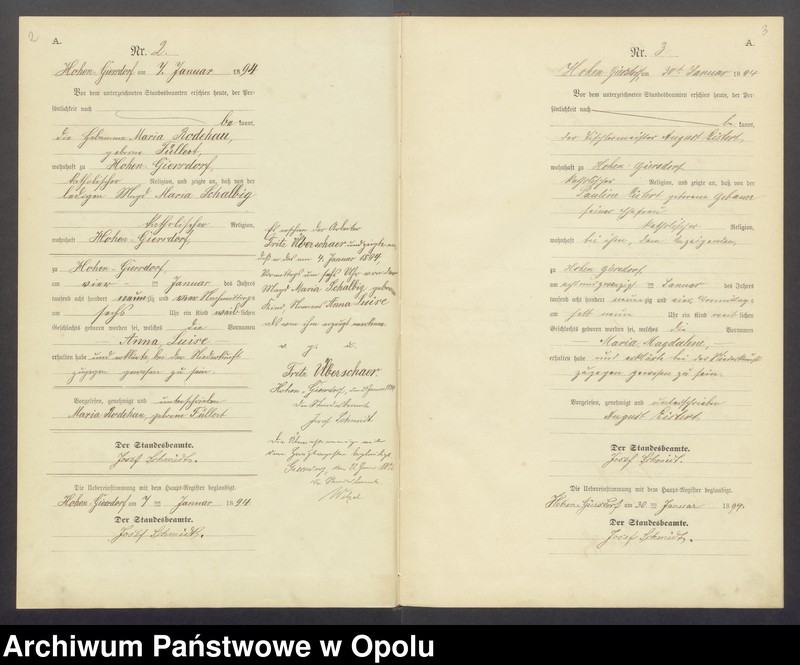 2
A.
Nr. 2.
Hohen-Giersdorf am 7. Januar 1894
Vor dem unterzeichneten Standesbeamten erschien heute, der Per-
sönlichkeit nach
be kannt,
die Hebamme Maria Rodehau,
geborne Füllert,
wohnhaft zu Hohen-Giersdorf,
katholischer Religion, und zeigte an, daß von der
ledigen Magd Maria Schalbig
katholischer Religion,
wohnhaft Hohen Giersdorf
zu Hohen-Giersdorf,
am vier - ten Januar des Jahres
tausend acht hundert neunzig und vier Vormittags
um sechs Uhr ein Kind weib lichen
Geschlechts geboren worden sei, welches die Vornamen
Anna Luise
erhalten habe und erklärte, bei der Niederkunft
zugegen gewesen zu sein.
Vorgelesen, genehmigt und unterschrieben
Maria Rodehau, geborne Füllert
Der Standesbeamte.
Josef Schmidt.
Die Übereinstimmung mit dem Haupt-Register beglaubigt.
Hohen-Giersdorf am 7 ten Januar 1894
Der Standesbeamte.
Josef Schmidt.
Es erschien der Arbeiter
Fritz Überschaer und zeigte an,
daß er das am 4. Januar 1894,
Vormittags um sechs Uhr von der
Magd Maria Schalbig geborne
Kind, Namens Anna Luise
als von ihm erzeugt anerkenne.
v. g. u.
Fritz Überschaer
Hohen-Giersdorf, den
Der Standesbeamte
Josef Schmidt
3
A.
Nr. 3
Hohen Giersdorf am 30ten Januar 1894
Vor dem unterzeichneten Standesbeamten erschien heute, der Per-
sönlichkeit nach
be kannt,
der Tischlermeister August
wohnhaft zu Hohen-Giersdorf
katholischer Religion, und zeigte an, daß von der
Pauline geborene
seiner Ehefrau
katholischer Religion,
wohnhaft bei ihm, dem Anzeigenden,
zu Hohen Giersdorf
am achtundzwanzig ten Januar des Jahres
tausend acht hundert neun zig und vier Vormittags
um halb neun Uhr ein Kind weib lichen
Geschlechts geboren worden sei, welches die Vornamen
Maria Magdalene,
erhalten habe und erklärte bei der Niederkunft
zugegen gewesen zu sein.
Vorgelesen, genehmigt und unterschrieben
August
Der Standesbeamte.
Josef Schmidt.
Die Übereinstimmung mit dem Haupt-Register beglaubigt.
Hohen-Giersdorf am 30 ten Januar 1894.
Der Standesbeamte.
Josef Schmidt.
Archiwum Państwowe w Opolu